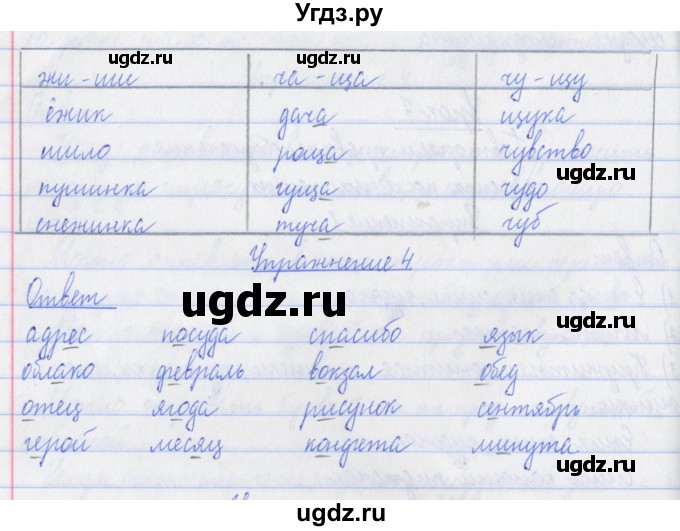 Угдз.ру
жи - ши ча - ща чу - щу
ёжик дача щука
шило роща чувство
пушинка гуща чудо
снежинка туча чуб
Упражнение 4
Ответ
адрес посуда спасибо язык
облако февраль вокзал обед
отец ягода рисунок сентябрь
герой месяц конфета минута
ugdz.ru
ugdz.ru
ugdz.ru
ugdz.ru
ugdz.ru
ugdz.ru
ugdz.ru
ugdz.ru